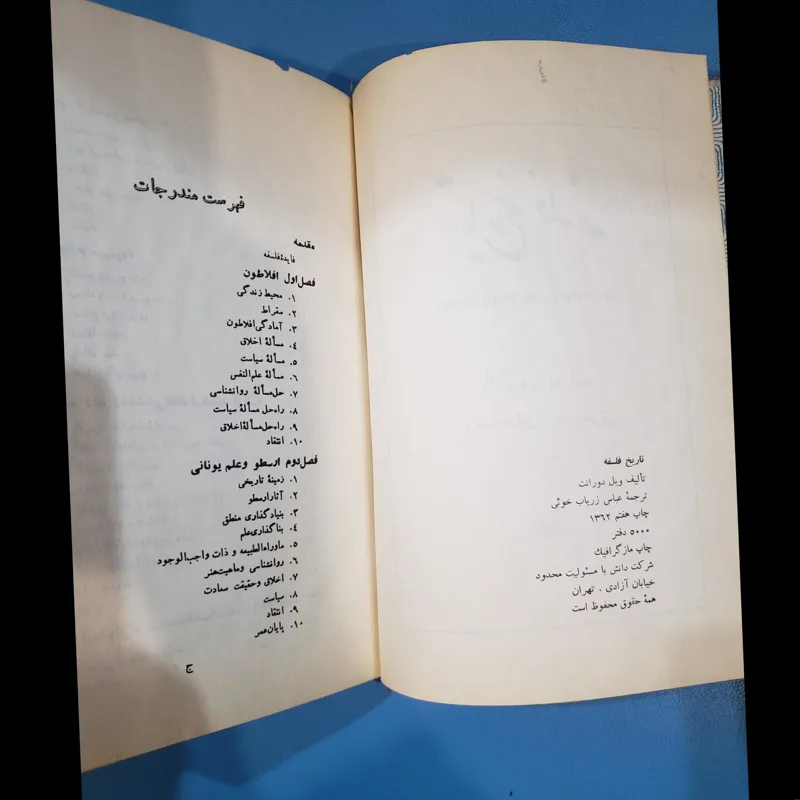 تاریخ فلسفه
تألیف ویل دورانت
ترجمهٔ عباس زریاب خوئی
چاپ هفتم ۱۳۶۲
۵۰۰۰ دفتر
چاپ مازگرافیک
شرکت دانش با مسئولیت محدود
خیابان آزادی . تهران
همهٔ حقوق محفوظ است
فهرست مندرجات
مقدمه
فایدهٔ فلسفه
فصل اول افلاطون
۱. محیط زندگی
۲. سقراط
۳. آمادگی افلاطون
۴. مسألهٔ اخلاق
۵. مسألهٔ سیاست
۶. مسألهٔ علم‌النفس
۷. حل مسألهٔ روانشناسی
۸. راه حل مسألهٔ سیاست
۹. راه حل مسألهٔ اخلاق
۱۰. انتقاد
فصل دوم ارسطو و علم یونانی
۱. زمینهٔ تاریخی
۲. آثار ارسطو
۳. بنیادگذاری منطق
۴. بناگذاری علم
۵. ماوراءالطبیعه و ذات واجب‌الوجود
۶. روانشناسی و ماهیت هنر
۷. اخلاق و حقیقت سعادت
۸. سیاست
۹. انتقاد
۱۰. پایان عمر
ج